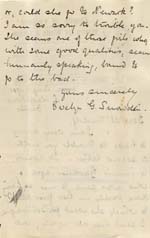 or, could she go to Newark?
I am so sorry to trouble you.
She seems one of those girls who,
with some good qualities, seem
humanly speaking, bound to
go to the bad.
Yours sincerely
Evelyn G